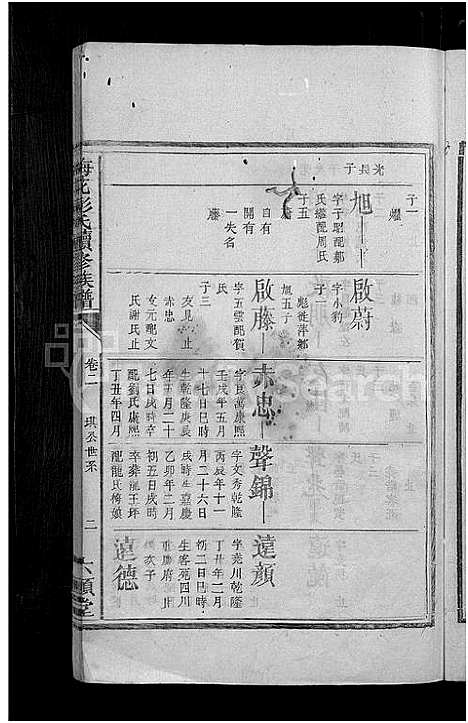 梅花彭氏續修族譜
卷二
琪公世系
二
六順堂
子一
燿
旭
字子昭配鄒
氏繼配周氏
子五
自有
開有
一失名
藤
啟蔚
字小豹
子一
彪徙萍鄉
旭五子
啟藤
字五雲配賀
氏
子三
赤忠
友元配文
氏謝氏止
赤忠
字良萬康熙
壬戌年五月
十七日巳時
生乾隆庚辰
年五月二十
七日戌時卒
配劉氏康熙
丁丑年四月
聲錦
字文秀乾隆
丙辰年十一
月二十六日
戌時生嘉慶
乙卯年二月
初五日戌時
卒葬龍王坪
配龍氏梅娘
遠顏
字堯川乾隆
丁丑年二月
初二日巳時
生客死四川
重慶府止
次子
遠德
iSearch